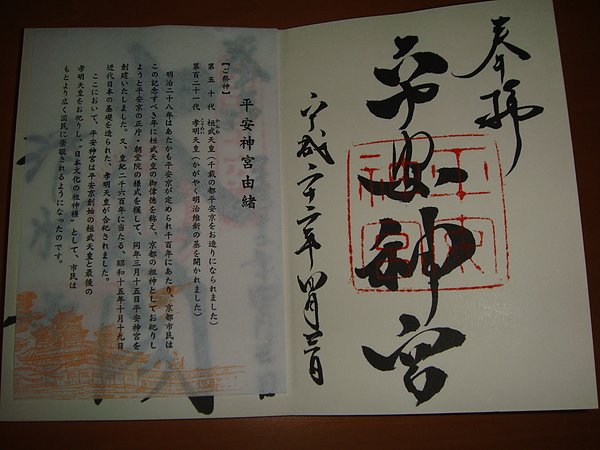 奉拝
平安神宮
平成二十二年
平安神宮由緒
【ご祭神】
第五十代 桓武天皇(千載の都平安京をお造りになられました)
第百二十一代 孝明天皇(かがやく明治維新の基を開かれました)
明治二十八年はあたかも平安京が定められ千百年にあたり、京都市民は
この記念すべき年に桓武天皇の御偉徳を称え、京都の祖神としてお祀りし
ようと平安京の正庁、朝堂院の様式を模して、同年三月十五日平安神宮を
創建いたしました。又、皇紀二千六百年に当たる、昭和十五年十月十九日
近代日本の基礎を造られた、孝明天皇が合祀されました。
ここにおいて、平安神宮は平安京創始の桓武天皇と最後の
孝明天皇をお祀りし、"日本文化の祖神様"として、市民は
もとより広く国民に崇敬されるようになったのです。